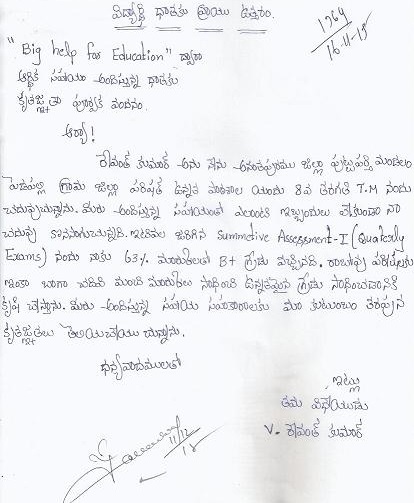 విద్యార్థి దాతకు వ్రాయు ఉత్తరం.
1364
16-11-15
"Big help for Education" ద్వారా
ఆర్థిక సహాయం అందిస్తున్న దాతకు
కృతజ్ఞతా పూర్వక వందనం.
ఆర్యా!
రేవంత్ కుమార్ అను నేను అనంతపురము జిల్లా పుట్టపర్తి మండలం
పెడపల్లి గ్రామ జిల్లా పరిషత్ ఉన్నత పాఠశాల యందు 8వ తరగతి T.M నందు
చదువుచున్నాను. మీరు అందిస్తున్న సహాయంతో ఎలాంటి ఇబ్బందులు లేకుండా నా
చదువు కొనసాగుచున్నది. ఇటీవల జరిగిన Summative Assessment-I (Quaterly
Exams) నందు నాకు 63% మార్కులతో B+ గ్రేడు వచ్చినది. రాబోవు పరీక్షలకు
ఇంకా బాగా చదివి మంచి మార్కులు సాధించి ఉన్నతమైన గ్రేడు సాధించడానికి
కృషి చేస్తాను. మీరు అందిస్తున్న సహాయ సహకారాలకు మా కుటుంబం తరఫున
కృతజ్ఞతలు తెలియచేయు చున్నాను.
ధన్యవాదములతో
ఇట్లు
తమ విధేయుడు
V. రేవంత్ కుమార్
11/12
15